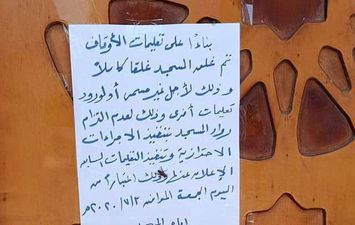 بناءًا على تعليمات الأوقاف
تم غلق المسجد غلقا كاملاً
وذلك لأجل غير مسمى أو لورود
تعليمات أخرى وذلك لعدم التزام
رواد المسجد بتنفيذ الاجراءات
الاحترازية وتنفيذ التعليمات السابق
الإعلان عنها وذلك اعتباراً من
اليوم الجمعة الموافق ٢٠٢٠/٧/٣م